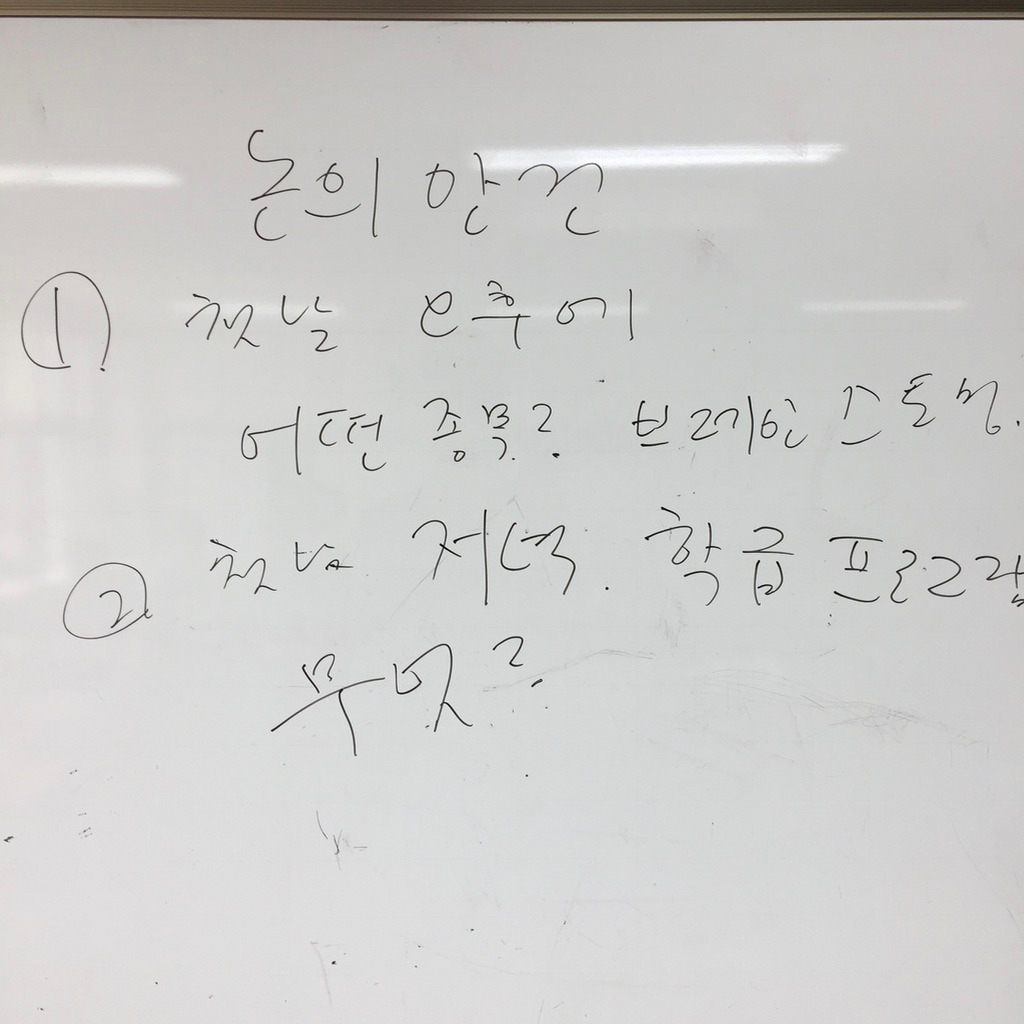 논의 안건
① 첫날 오후에
어떤 종목? 브레인스토밍.
② 첫날 저녁. 학급 프로그램
무엇?